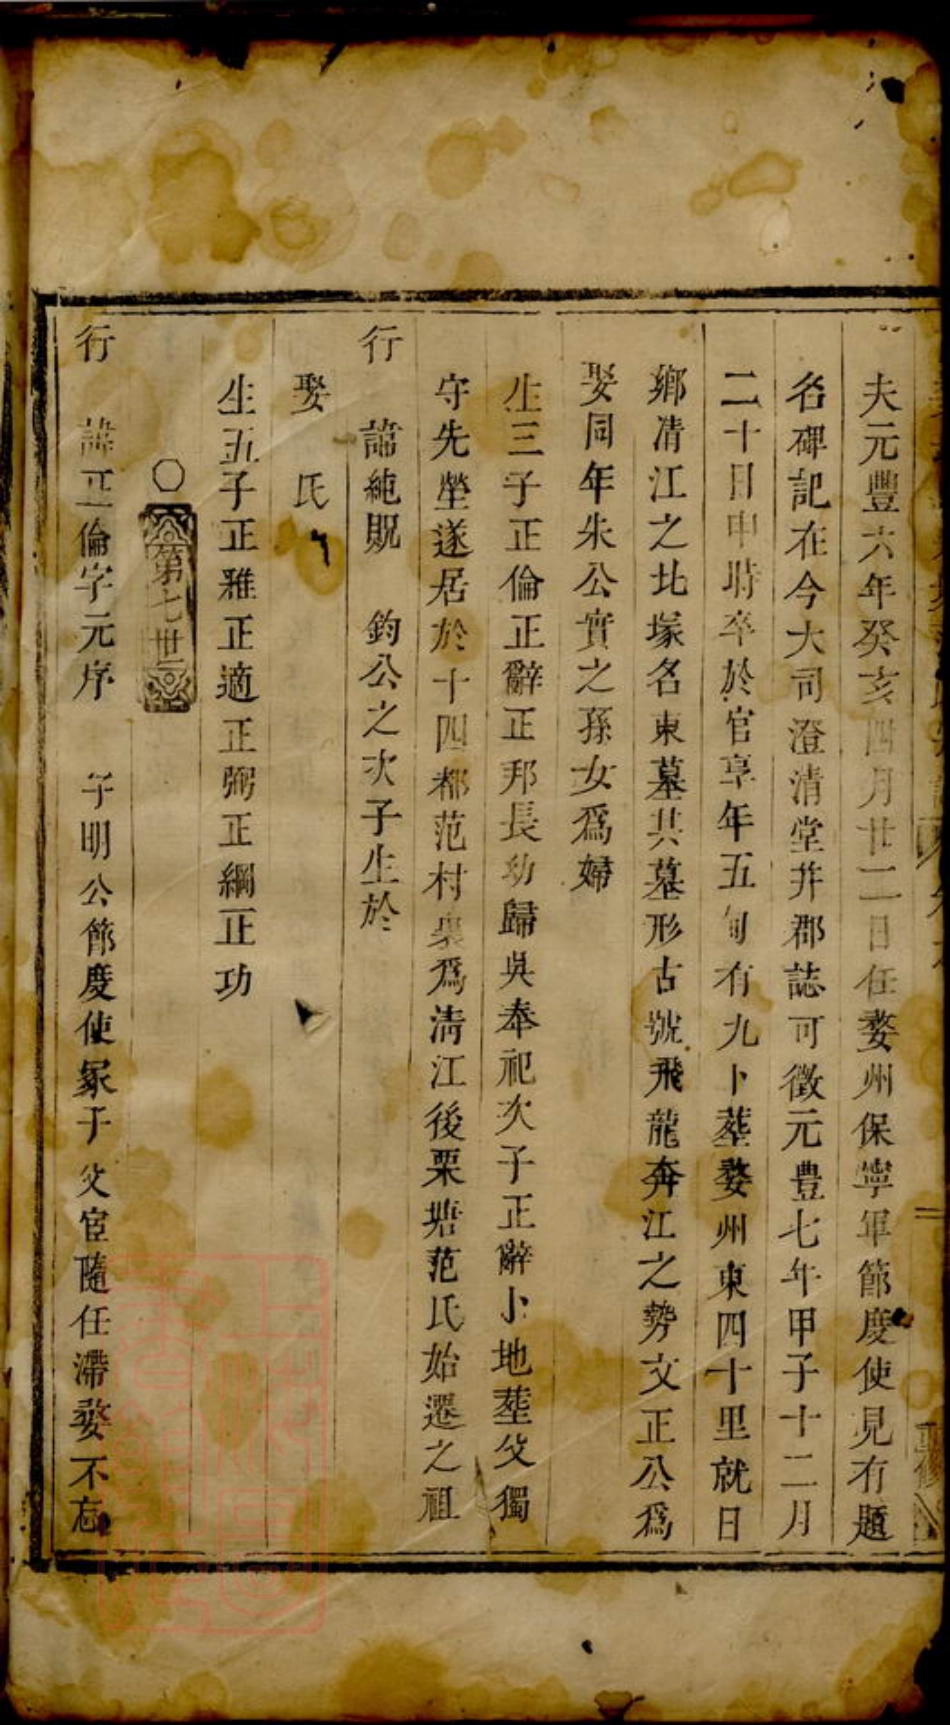 夫元豐六年癸亥四月廿二日任婺州保寧軍節度使見有題
名碑記在今大司澄清堂并郡誌可徵元豊七年甲子十二月
二十日申時卒於官享年五旬有九卜塟婺州東四十里就日
鄉清江之北塚名東墓其墓形古號飛龍奔江之勢文正公爲
娶同年朱公實之孫女爲婦
生三子正倫正辭正邦長幼歸吳奉祀次子正辭卜地塟父獨
守先塋遂居於十四都范村裊爲淸江後栗塘范氏始遷之祖
行 諱純貺 鈞公之次子生於
娶 氏
生五子正雅正適正弼正綱正功
〇第七世
行 諱正倫字元序 子明公節度使冢子父宦隨任滯婺不忘